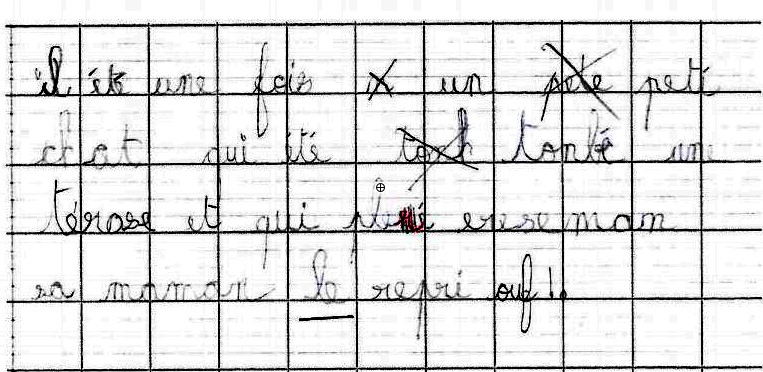 il été une fois un peti
chat qui été tonbé une
térase et qui pleré ereseman
sa maman le repri ouf !.